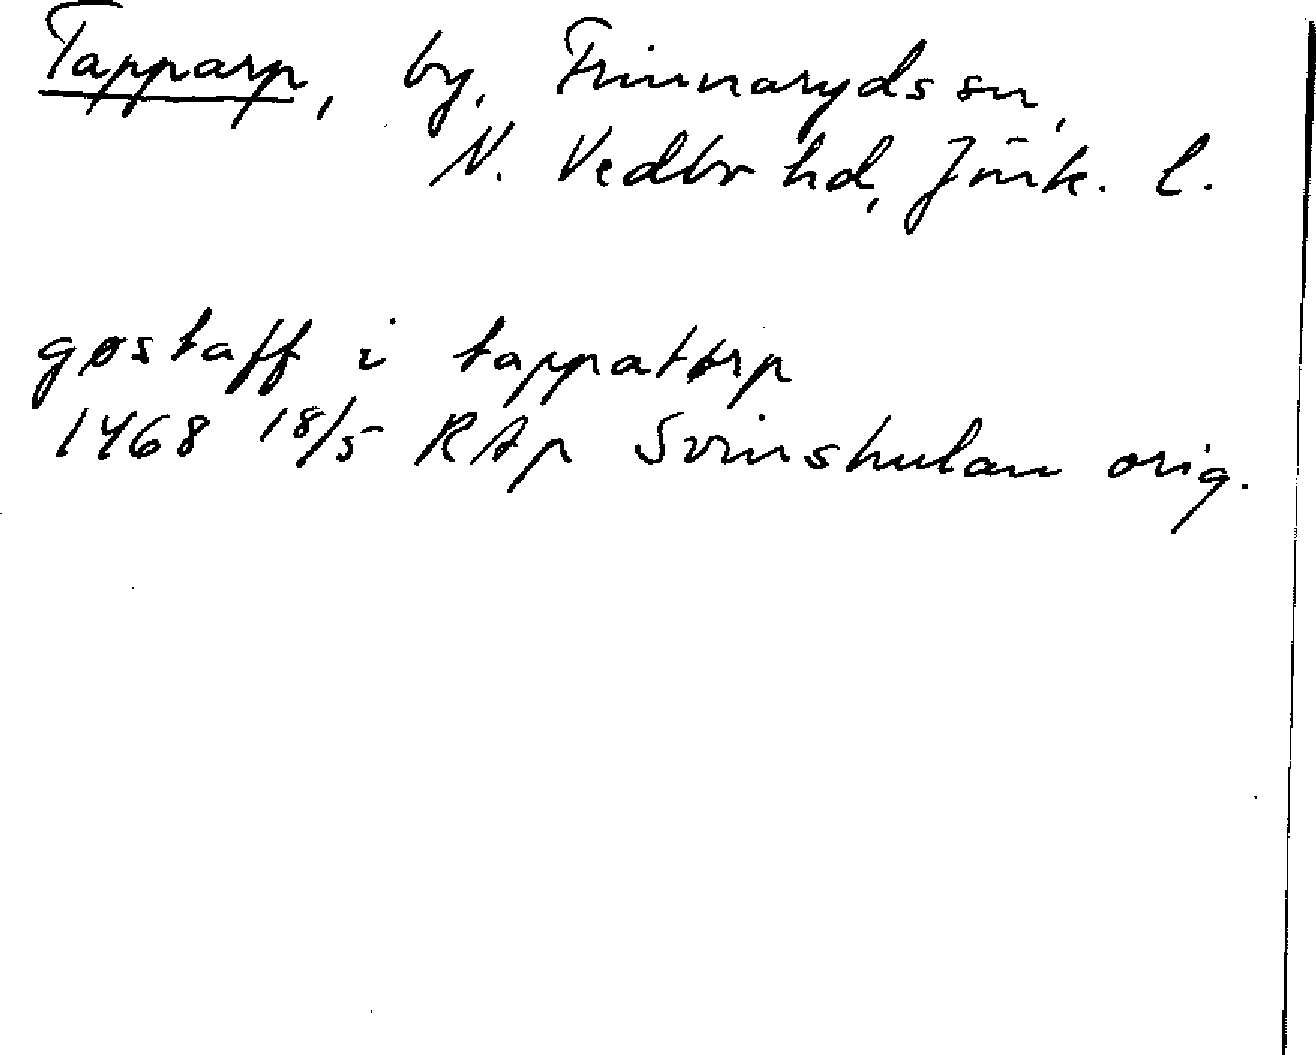 Tapparp, by, Finnaryds sn,
N. Vedbo hd, Jönk. l.
gøstaff i tappatorp
1468 18/5 RAp Svinshulan orig.